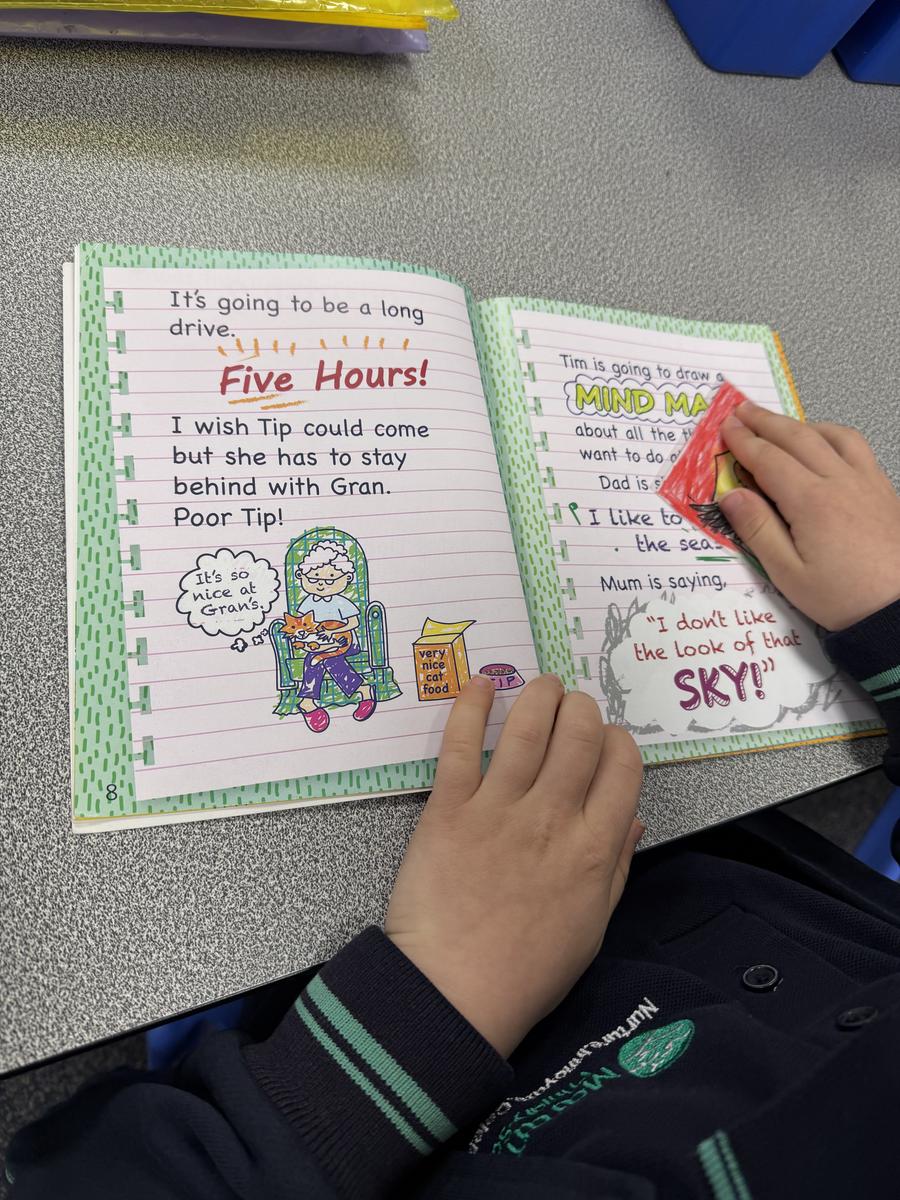 It's going to be a long
drive.
Five Hours!
I wish Tip could come
but she has to stay
behind with Gran.
Poor Tip!
It's so
nice at
Gran's.
very
nice
cat
food
8
Tim is going to draw a
MIND
about all the
want to do
Dad is
I like to
the sea
Mum is saying,
"I don't like
the look of that
SKY!"